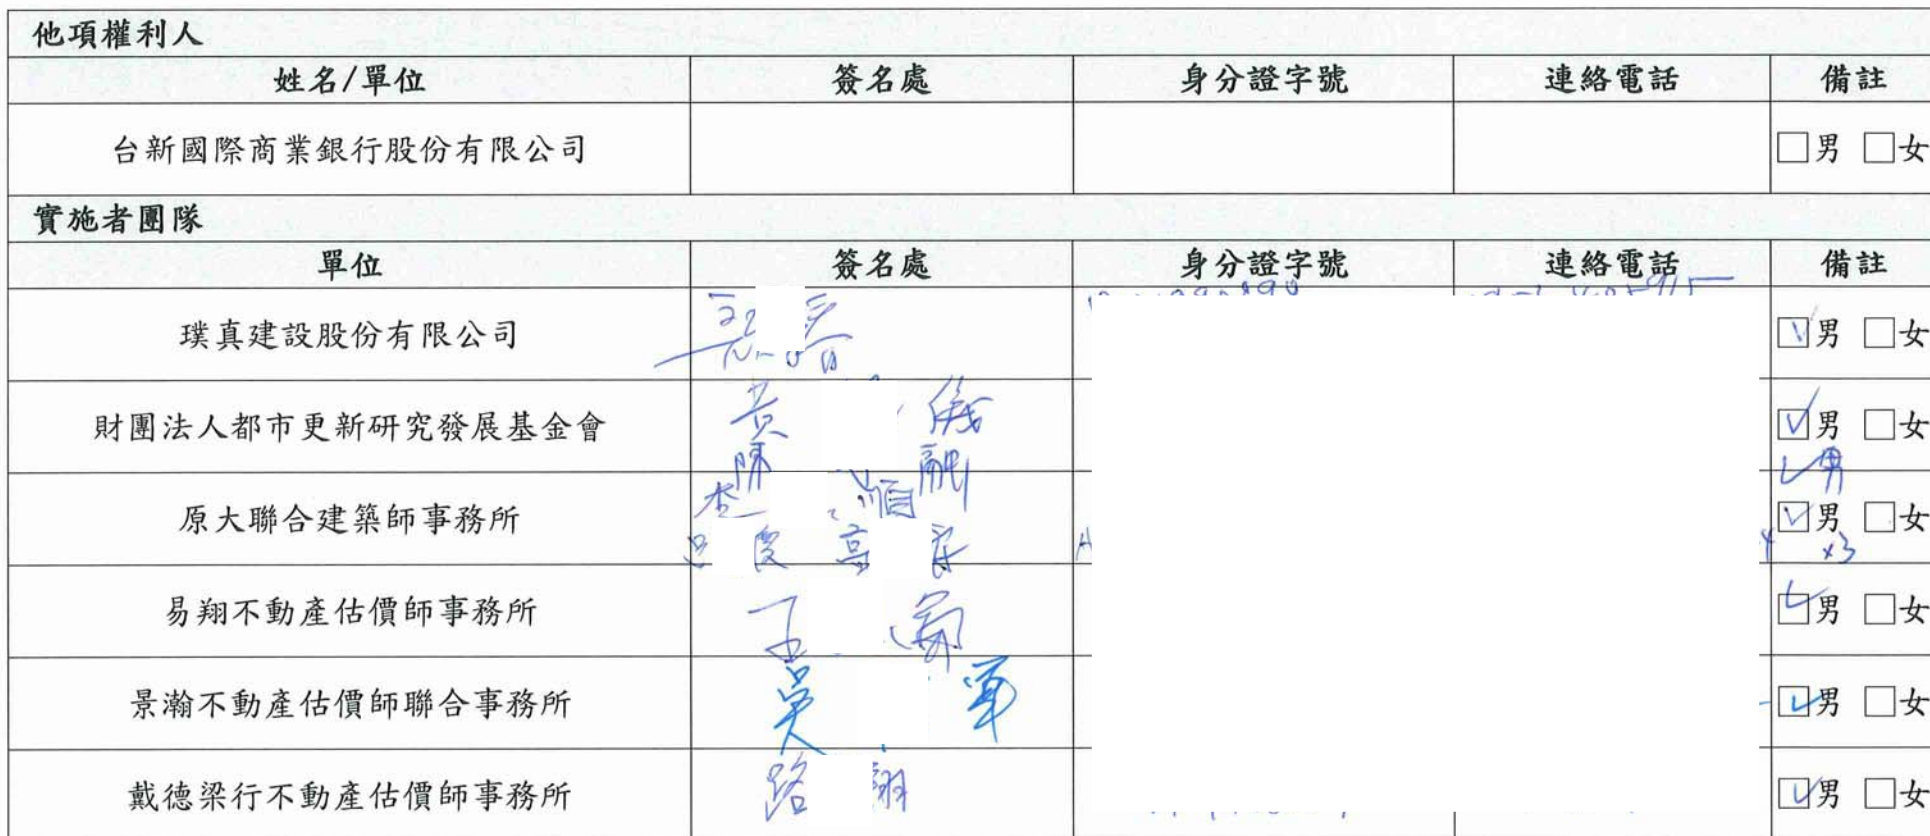 他項權利人
姓名/單位 簽名處 身分證字號 連絡電話 備註
台新國際商業銀行股份有限公司 □男 □女
實施者團隊
單位 簽名處 身分證字號 連絡電話 備註
璞真建設股份有限公司 ☑男 □女
財團法人都市更新研究發展基金會 黃 儀 ☑男 □女
陳 融 ✓男
原大聯合建築師事務所 李 順 ☑男 □女
呂 慶 高 x3
易翔不動產估價師事務所 王 ☑男 □女
景瀚不動產估價師聯合事務所 吳 軍 ☑男 □女
戴德梁行不動產估價師事務所 路 翔 ☑男 □女